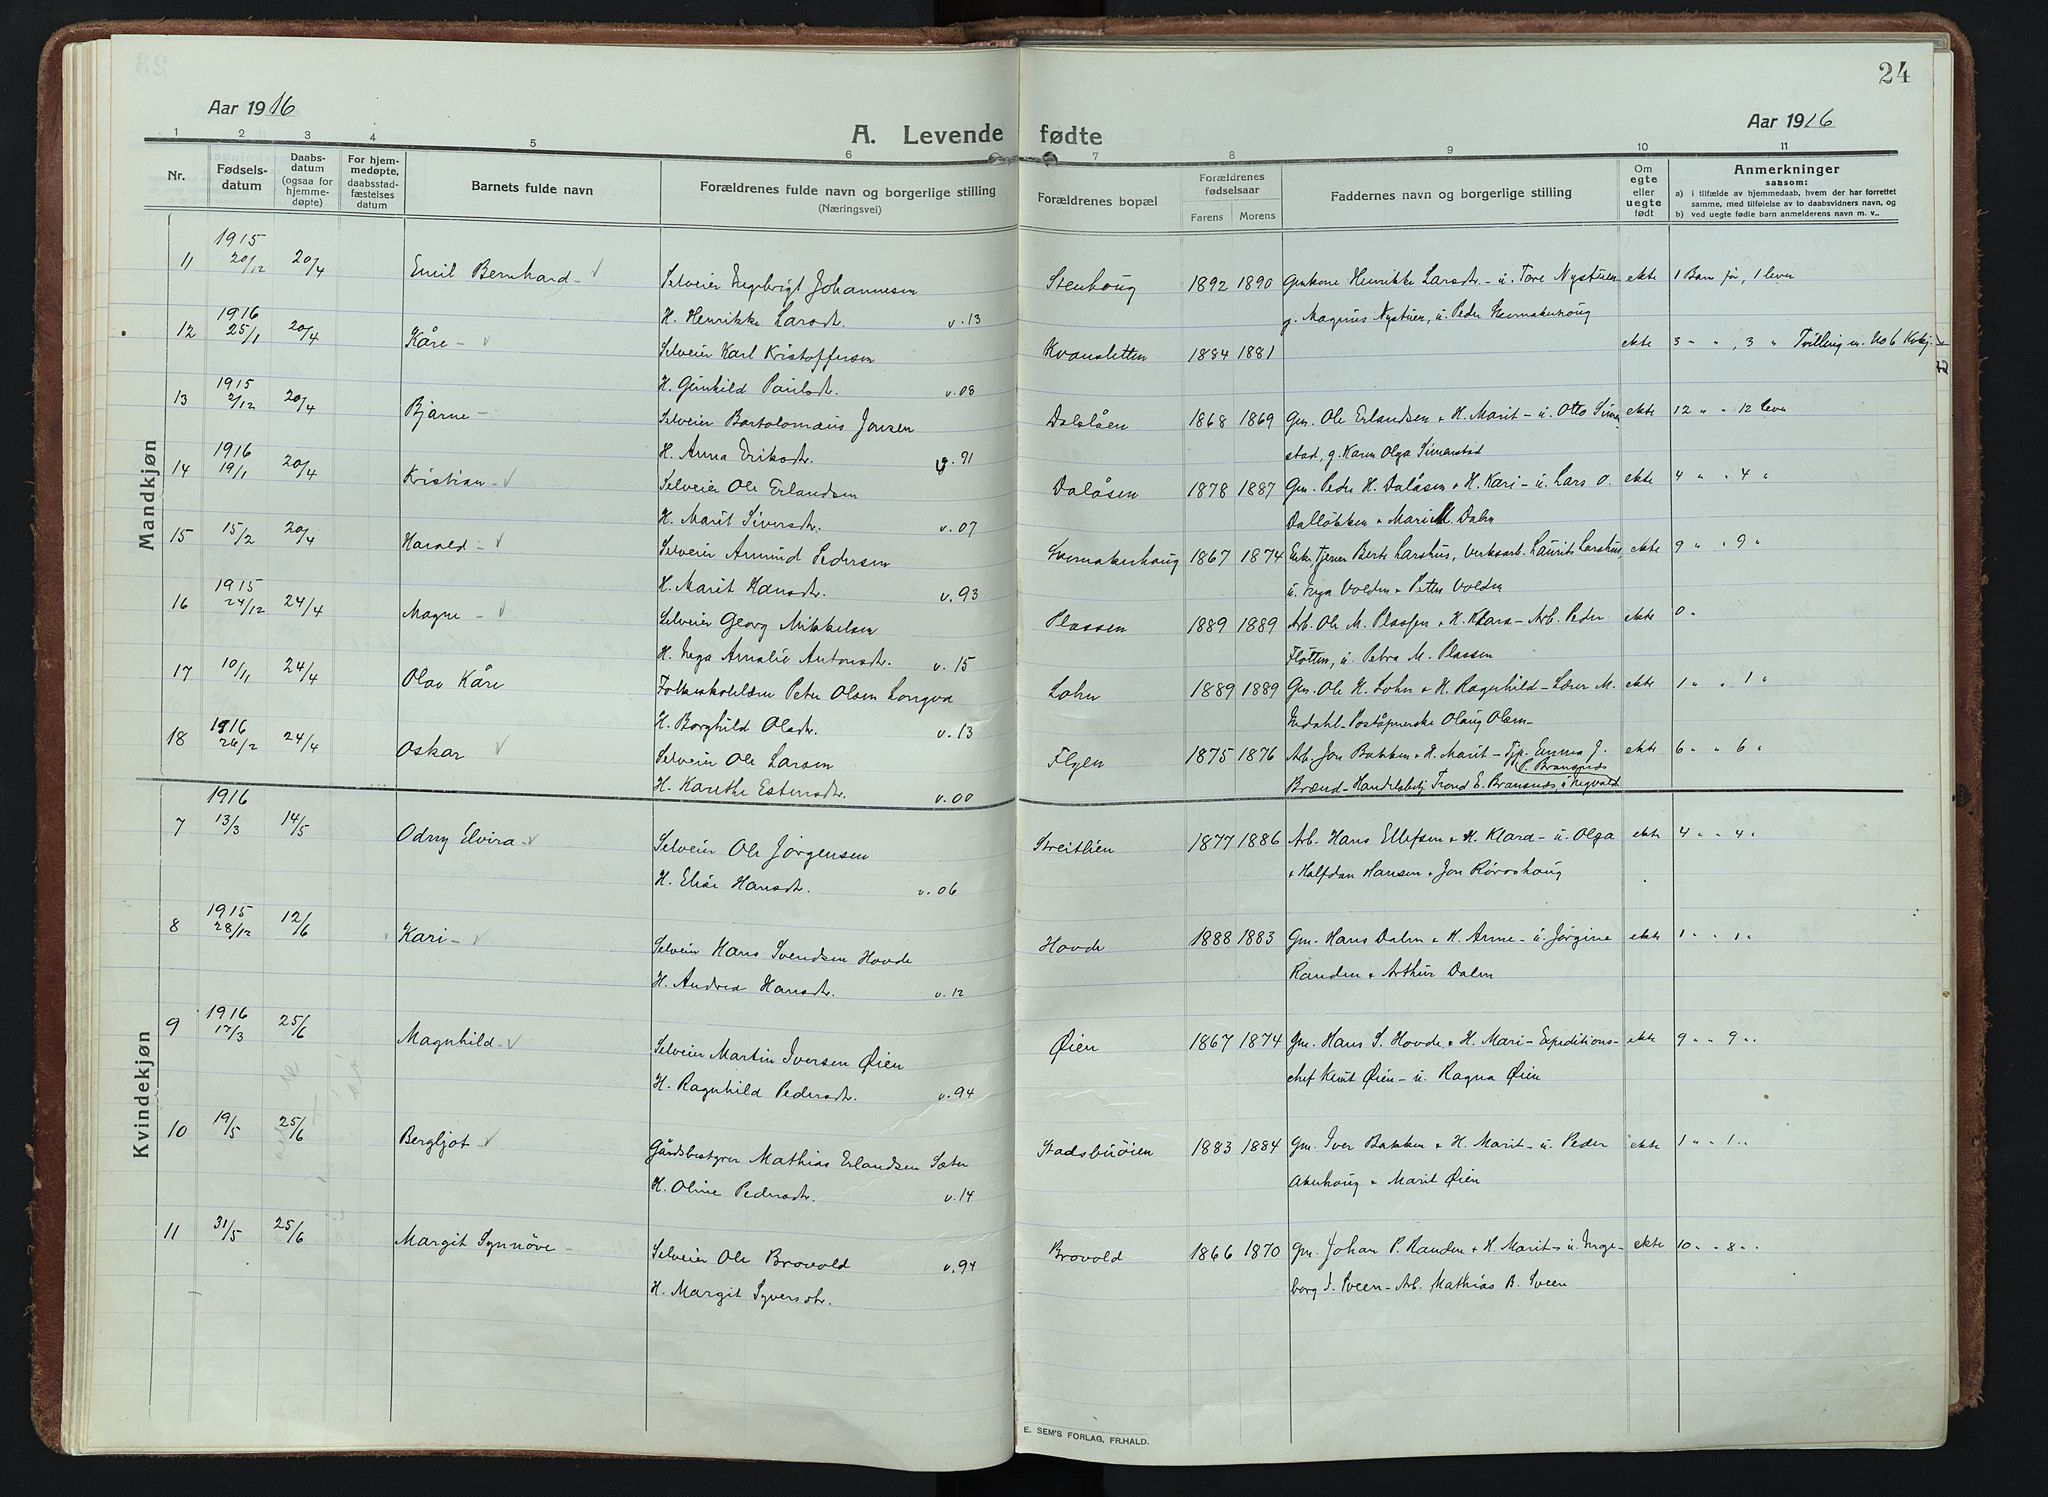 24
Aar 1916
Aar 1916
A. Levende fødte
1 2 3 4 5 6 7 8 9 10 11
Nr.
Fødsels-
datum
Daabs-
datum
(ogsaa for
hjemme-
døpte)
For hjem-
medøpte,
daabsstad-
fæstelses
datum
Barnets fulde navn
Forældrenes fulde navn og borgerlige stilling
(Næringsvei)
Forældrenes bopæl
Forældrenes
fødselsaar
Farens Morens
Faddernes navn og borgerlige stilling
Om
egte
eller
uegte
født
Anmerkninger
saasom:
a) i tilfælde av hjemmedaab, hvem der har forrettet
samme, med tilføielse av to daabsvidners navn, og
b) ved uegte fødte barn anmelderens navn m. v..
Mandkjøn
1915
11 20/12 20/4 Emil Bernhard - Selveier Ingebrigt Johannesen Stenhoug 1892 1890 Henrikke Larsdtr. - u. Tore Nystuen ekte 1 Barn før, 1 lever
H. Henrikke Larsdtr. v. 13 g. Magnus Nystuen, u. Peder
1916
12 25/1 20/4 Kåre - Selveier Karl Kristoffersen Kvansletten 1884 1881 ekte 3 - " , 3 " Tvilling m. No 6 Kvkj.
H. Gunhild Paulsdtr. v. 08
1915
13 2/12 20/4 Bjarne - Selveier Bartolomæus Jonsen Dalslåen 1868 1869 Gm. Ole Erlandsen & H. Marit - u. Otto Siman- ekte 12 " " 12 leve
H. Anna Eriksdtr. v. 91 stad, g. Karen Olga Simanstad
1916
14 19/1 20/4 Kristian - Selveier Ole Erlandsen Dalåsen 1878 1887 Gm. Peder H. Dalåsen & H. Kari - u. Lars O. ekte 4 " " 4 "
H. Marit Siversdtr. v. 07 Dalløkken & Mari M. Dalen
15 15/2 20/4 Harald - Selveier Amund Pedersen 1867 1874 Tjener Berte Larshus, Verksarb. Laurits Larshus ekte 9 " " 9 "
H. Marit Hansdtr. v. 93 u. Inga Volden & Petter Volden
1915
16 24/12 24/4 Magne - Selveier Georg Mikkelsen Plassen 1889 1889 Arb. Ole M. Plassen & H. Klara - Arb. Peder ekte 0 "
H. Inga Amalie Antonsdtr. v. 15 Fløtten, u. Petra M. Plassen
17 10/11 24/4 Olav Kåre Folkeskolelærer Peter Olsen Longva Lohn 1889 1889 Gm. Ole H. Lohn & H. Ragnhild - Lærer M. ekte 1 " " 1 "
H. Borghild Olsdtr. v. 13 Indahl - Poståpnerske Olaug Olsen -
1916
18 26/2 24/4 Oskar Selveier Ole Larsen Flyen 1875 1876 Arb. Jon Bakken & H. Marit - Tjp. Emma J. ekte 6 " " 6 "
P. Bransnes
H. Karethe Estensdtr. v. 00 Brænd - Handelsbetj Trond E. Bransnes, u. Ingvald
Kvindekjøn
1916
7 13/3 14/5 Odny Elvira - Selveier Ole Jørgensen Streitlien 1877 1886 Arb. Hans Ellefsen & H. Klara - u. Olga ekte 4 " " 4 "
H. Elise Hansdtr. v. 06 & Halfdan Hansen & Jon Røroshoug
1915
8 28/12 12/6 Kari - Selveier Hans Svendsen Hovde Hovde 1888 1883 Gm. Hans Dalen & H. Anne - u. Jørgine ekte 1 " " 1 "
H. Andrea Hansdtr. v. 12 Randen & Arthur Dalen
1916
9 17/3 25/6 Magnhild - Selveier Martin Iversen Øien Øien 1867 1874 Gm. Hans S. Hovde & H. Mari - Expeditions- ekte 9 " " 9 "
H. Ragnhild Pedersdtr. v. 94 chef Knut Øien - u. Ragna Øien
10 19/5 25/6 Bergljot - Gårdsbestyrer Mathias Erlandsen Sæter Stadsbuøien 1883 1884 Gm. Iver Bakken & H. Marit - u. Peder ekte 1 " " 1 "
H. Oline Pedersdtr. v. 14 Akerhoug & Marit Øien
11 31/5 25/6 Margit Synnöve - Selveier Ole Brovold v. 94 Brovold 1866 1870 Gm. Johan P. Randen & H. Marit - u. Inge- ekte 10 " " 8 "
H. Margit Syversdtr. borg J. Sveen - Arb. Mathias B. Sveen
E. SEM'S FORLAG, FR.HALD.